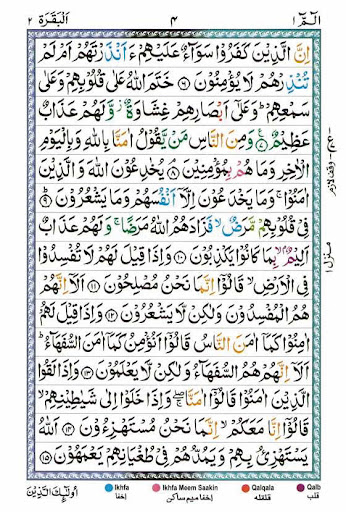 الٓمّٓ ١ ٤ اَلْبَقَرَة ٢
اِنَّ الَّذِيْنَ كَفَرُوْا سَوَآءٌ عَلَيْهِمْ ءَاَنْذَرْتَهُمْ اَمْ لَمْ
تُنْذِرْهُمْ لَا يُؤْمِنُوْنَ ﴿۶﴾ خَتَمَ اللّٰهُ عَلٰى قُلُوْبِهِمْ وَعَلٰى
سَمْعِهِمْ ؕ وَعَلٰٓى اَبْصَارِهِمْ غِشَاوَةٌ ؗ وَّلَهُمْ عَذَابٌ
عَظِيْمٌ ﴿۷﴾ وَمِنَ النَّاسِ مَنْ يَّقُوْلُ اٰمَنَّا بِاللّٰهِ وَبِالْيَوْمِ
الْاٰخِرِ وَمَا هُمْ بِمُؤْمِنِيْنَ ﴿۸﴾ يُخٰدِعُوْنَ اللّٰهَ وَالَّذِيْنَ
اٰمَنُوْا ۚ وَمَا يَخْدَعُوْنَ اِلَّاۤ اَنْفُسَهُمْ وَمَا يَشْعُرُوْنَ ﴿۹﴾
فِيْ قُلُوْبِهِمْ مَّرَضٌ ۙ فَزَادَهُمُ اللّٰهُ مَرَضًا ۚ وَلَهُمْ عَذَابٌ
اَلِيْمٌۢ بِمَا كَانُوْا يَكْذِبُوْنَ ﴿۱۰﴾ وَاِذَا قِيْلَ لَهُمْ لَا تُفْسِدُوْا
فِي الْاَرْضِ ۙ قَالُوْۤا اِنَّمَا نَحْنُ مُصْلِحُوْنَ ﴿۱۱﴾ اَلَاۤ اِنَّهُمْ
هُمُ الْمُفْسِدُوْنَ وَلٰكِنْ لَّا يَشْعُرُوْنَ ﴿۱۲﴾ وَاِذَا قِيْلَ لَهُمْ
اٰمِنُوْا كَمَاۤ اٰمَنَ النَّاسُ قَالُوْۤا اَنُؤْمِنُ كَمَاۤ اٰمَنَ السُّفَهَآءُ ؕ
اَلَاۤ اِنَّهُمْ هُمُ السُّفَهَآءُ وَلٰكِنْ لَّا يَعْلَمُوْنَ ﴿۱۳﴾ وَاِذَا لَقُوا
الَّذِيْنَ اٰمَنُوْا قَالُوْۤا اٰمَنَّا ۖۚ وَاِذَا خَلَوْا اِلٰى شَيٰطِيْنِهِمْ ۙ
قَالُوْۤا اِنَّا مَعَكُمْ ۙ اِنَّمَا نَحْنُ مُسْتَهْزِءُوْنَ ﴿۱۴﴾ اَللّٰهُ
يَسْتَهْزِئُ بِهِمْ وَيَمُدُّهُمْ فِيْ طُغْيَانِهِمْ يَعْمَهُوْنَ ﴿۱۵﴾
منزل ١
Ikhfa Ikhfa Meem Saakin Qalqala Qalb
اخفا اخفا میم ساکن قلقله قلب
اُولٰٓئِكَ الَّذِيْنَ